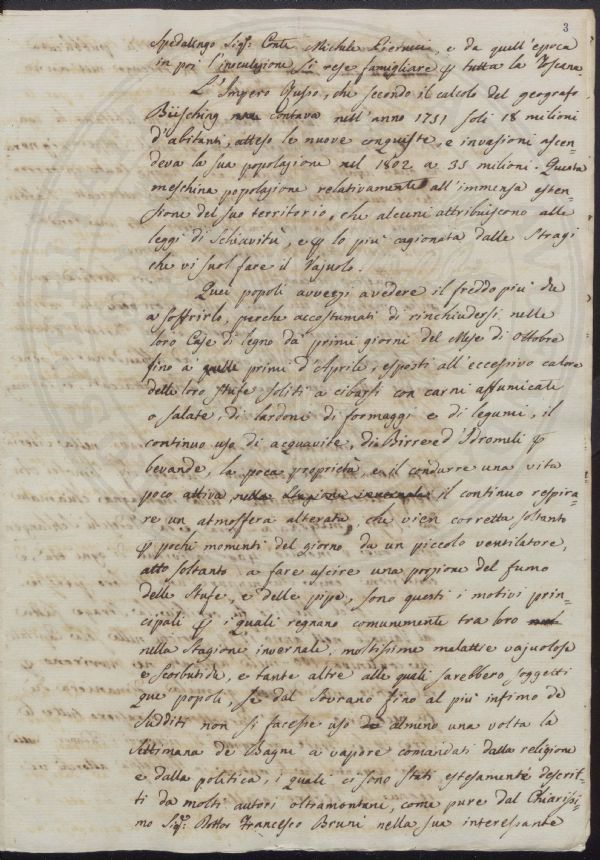 3
Spedalingo Sigr. Conte Michele Pierucci, e da quell'epoca
in poi l'inoculazione si rese famigliare p tutta la Toscana
L'Impero Russo, che secondo il calcolo del geografo
Büsching contava nell'anno 1751 soli 18 milioni
d'abitanti, atteso le nuove conquiste, e invasioni ascen-
deva la sua popolazione nel 1802 a 35 milioni. Questa
meschina popolazione relativamente all'immensa esten-
sione del suo territorio, che alcuni attribuiscono alle
leggi di Schiavitù, e p lo più cagionata dalle Stragi
che vi suol fare il Vajuolo.
Quei popoli avvezzi a vedere il freddo più che
a soffrirlo, perche accostumati di rinchiudersi nelle
loro Case di legno da' primi giorni del Mese di Ottobre
fino a' primi d'Aprile, esposti all'eccessivo calore
delle loro stufe soliti a cibarsi con carni affumicate
o salate, di lardoni di formaggi e di legumi, il
continuo uso di acquavite, di Birre ed'Idromeli p
bevande, la poca proprietà, e il condurre una vita
poco attiva nella stagione invernale il continuo respira-
re un atmosfera alterata, che vien corretta soltanto
p pochi momenti del giorno da un piccolo ventilatore,
atto soltanto a fare uscire una porzione del fumo
delle Stufe, e delle pipe, sono questi i motivi prin-
cipali p i quali regnano comunemente tra loro
nella Stagione invernale, moltissime malattie vajuolose
e Scorbutiche, e tante altre alle quali sarebbero soggetti
que' popoli, se dal Sovrano fino al più infimo de
Sudditi non si facesse uso almeno una volta la
Settimana de Bagni a vapore comandati dalla religione
e dalla politica, i quali ci sono stati estesamente descrit-
ti da molti autori oltramontani, come pure dal Chiarissi-
mo Sigr. Dottor Francesco Bruni nella sua interessante